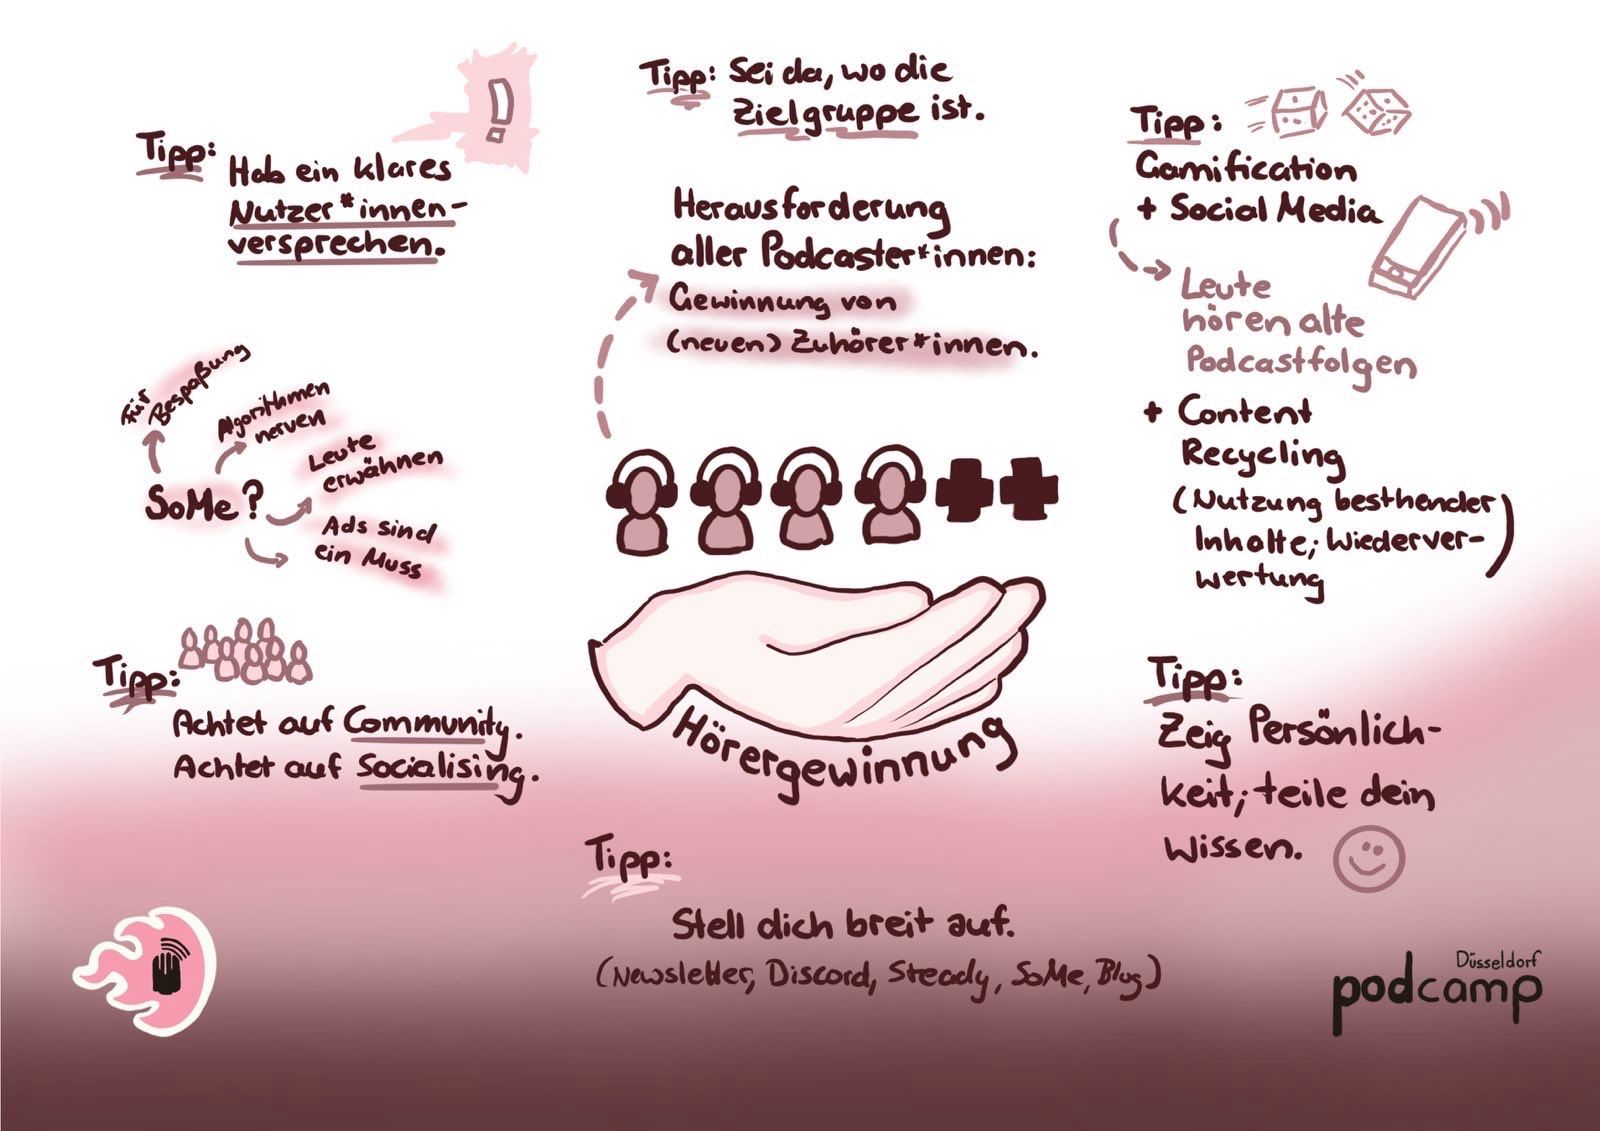 Tipp:
Hab ein klares
Nutzer*innen-
versprechen.
Tipp: Sei da, wo die
Zielgruppe ist.
Herausforderung
aller Podcaster*innen:
Gewinnung von
(neuen) Zuhörer*innen.
Tipp:
Gamification
+ Social Media
Leute
hören alte
Podcastfolgen
+ Content
Recycling
(Nutzung besthender
Inhalte; Wiederver-
wertung)
SoMe?
Für
Bespaßung
Algorithmen
nerven
Leute
erwähnen
Ads sind
ein Muss
Tipp:
Achtet auf Community.
Achtet auf Socialising.
Hörergewinnung
Tipp:
Zeig Persönlich-
keit; teile dein
Wissen.
Tipp:
Stell dich breit auf.
(Newsletter, Discord, Steady, SoMe, Blog)
Düsseldorf
podcamp